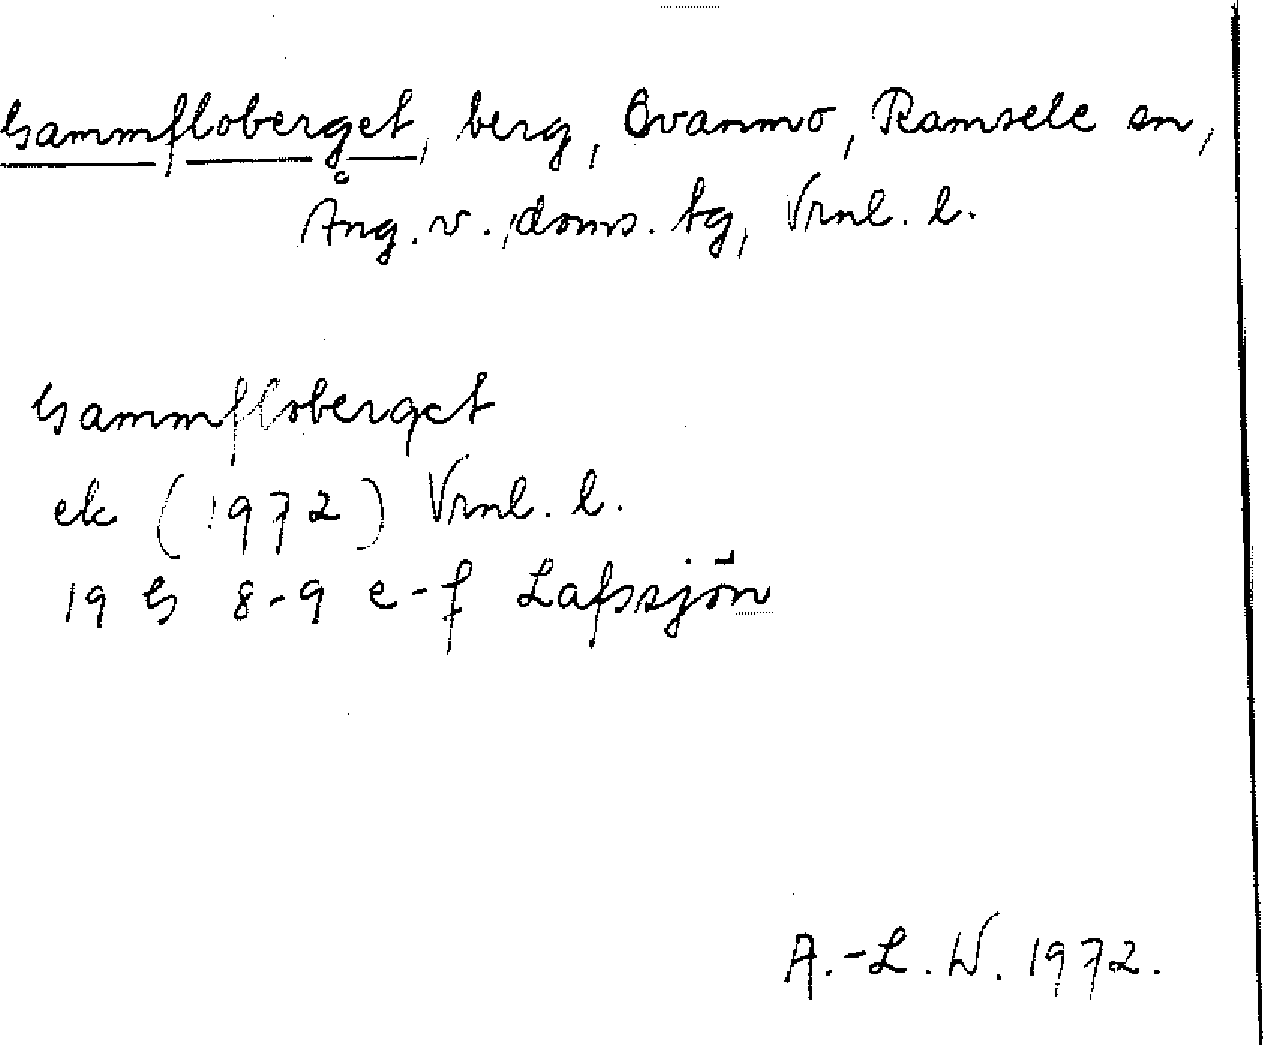 Gammfloberget, berg, Ovanmo, Ramsele sn,
Ång. v. doms. tg, Vrnl. l.
Gammfloberget
ek (1972) Vrnl. l.
19 G 8-9 e-f Lafssjön
A.-L. W. 1972.